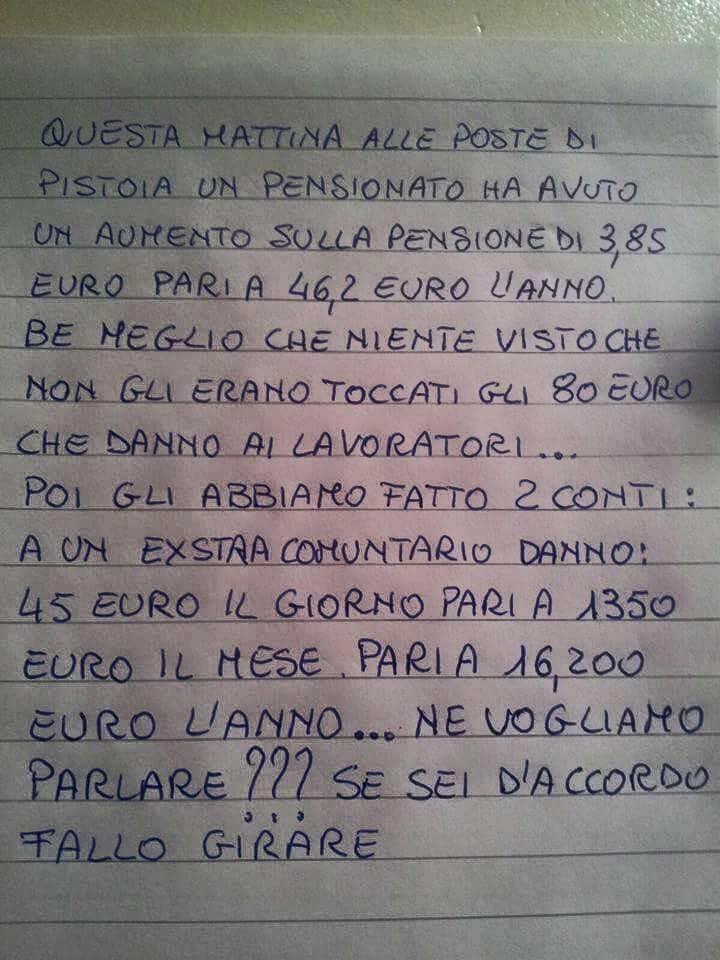 QUESTA MATTINA ALLE POSTE DI
PISTOIA UN PENSIONATO HA AVUTO
UN AUMENTO SULLA PENSIONE DI 3,85
EURO PARI A 46,2 EURO L'ANNO.
BE MEGLIO CHE NIENTE VISTO CHE
NON GLI ERANO TOCCATI GLI 80 EURO
CHE DANNO AI LAVORATORI...
POI GLI ABBIAMO FATTO 2 CONTI:
A UN EXSTRA COMUNTARIO DANNO:
45 EURO IL GIORNO PARI A 1350
EURO IL MESE. PARI A 16,200
EURO L'ANNO... NE VOGLIAMO
PARLARE ??? SE SEI D'ACCORDO
FALLO GIRARE